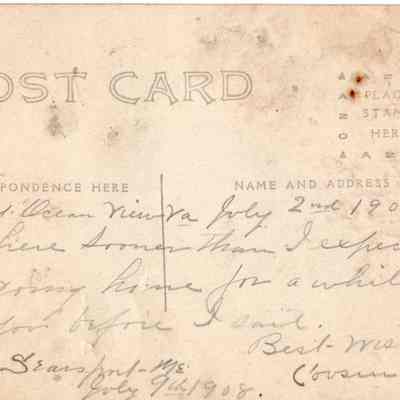 OST CARD
PLAC
STAM
HER
PONDENCE HERE
NAME AND ADDRESS
Ocean View Va July 2nd 190
here sooner than I expec
going home for a whil
you before I said.
Best Wis
Searsport-Me
Cousin
July 9th 1908.